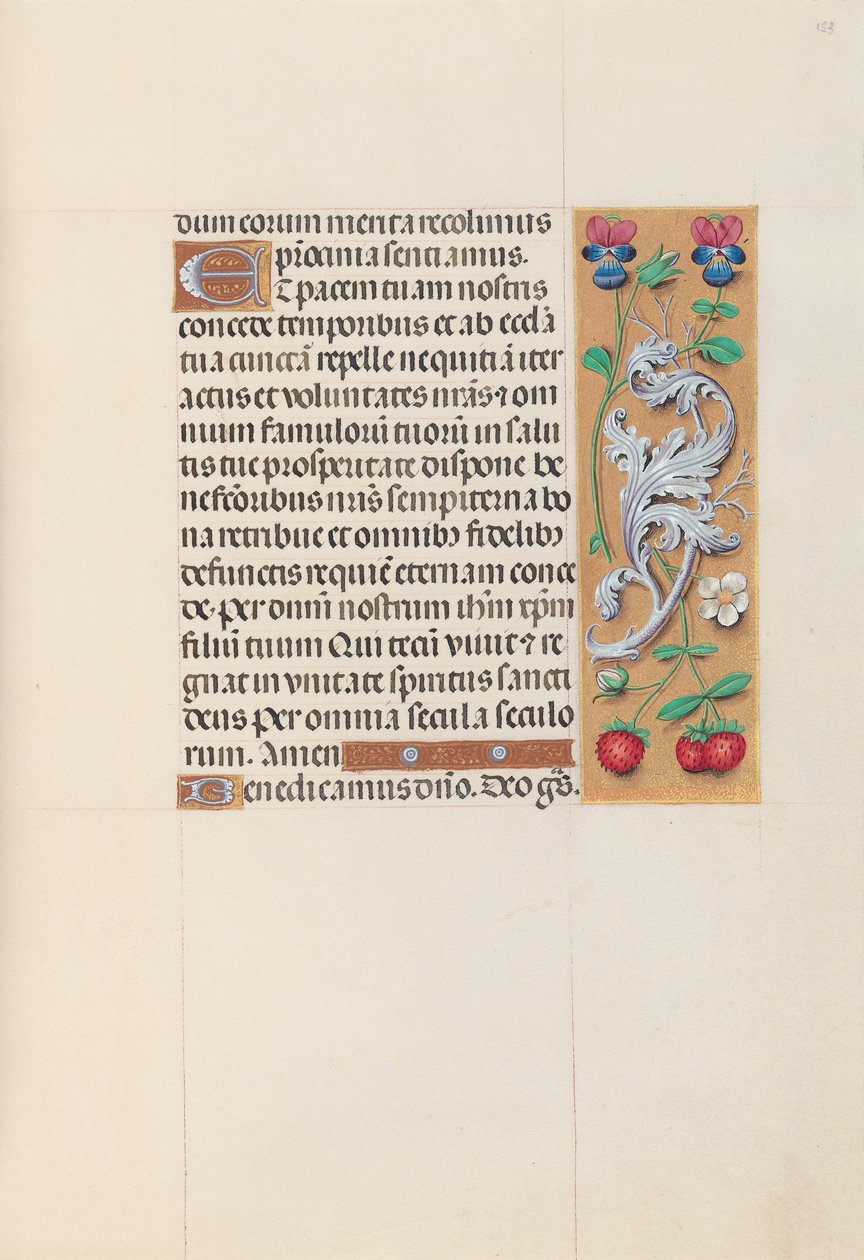 153
dum eorum merita recolimus
pr̄ocinia sentiamus.
Et pacem tuam nostris
concede temporibus et ab eccl̄ā
tua cunctā repelle nequitiā iter
actus et voluntates nr̄as ⁊ om
nium famulorū tuorū in salu
tis tue prosperitate dispone be
nefc̄oribus nr̄is sempiterna bo
na retribue et omnibꝫ fidelibꝫ
defunctis requiē eternam conce
de. per dnm̄ nostrum ih̄m xp̄m
filiū tuum Qui tecū viuit ⁊ re
gnat in vnitate spiritus sancti
deus per omnia secula seculo
rum. Amen
Benedicamus dn̄o. Deo gr̄as.